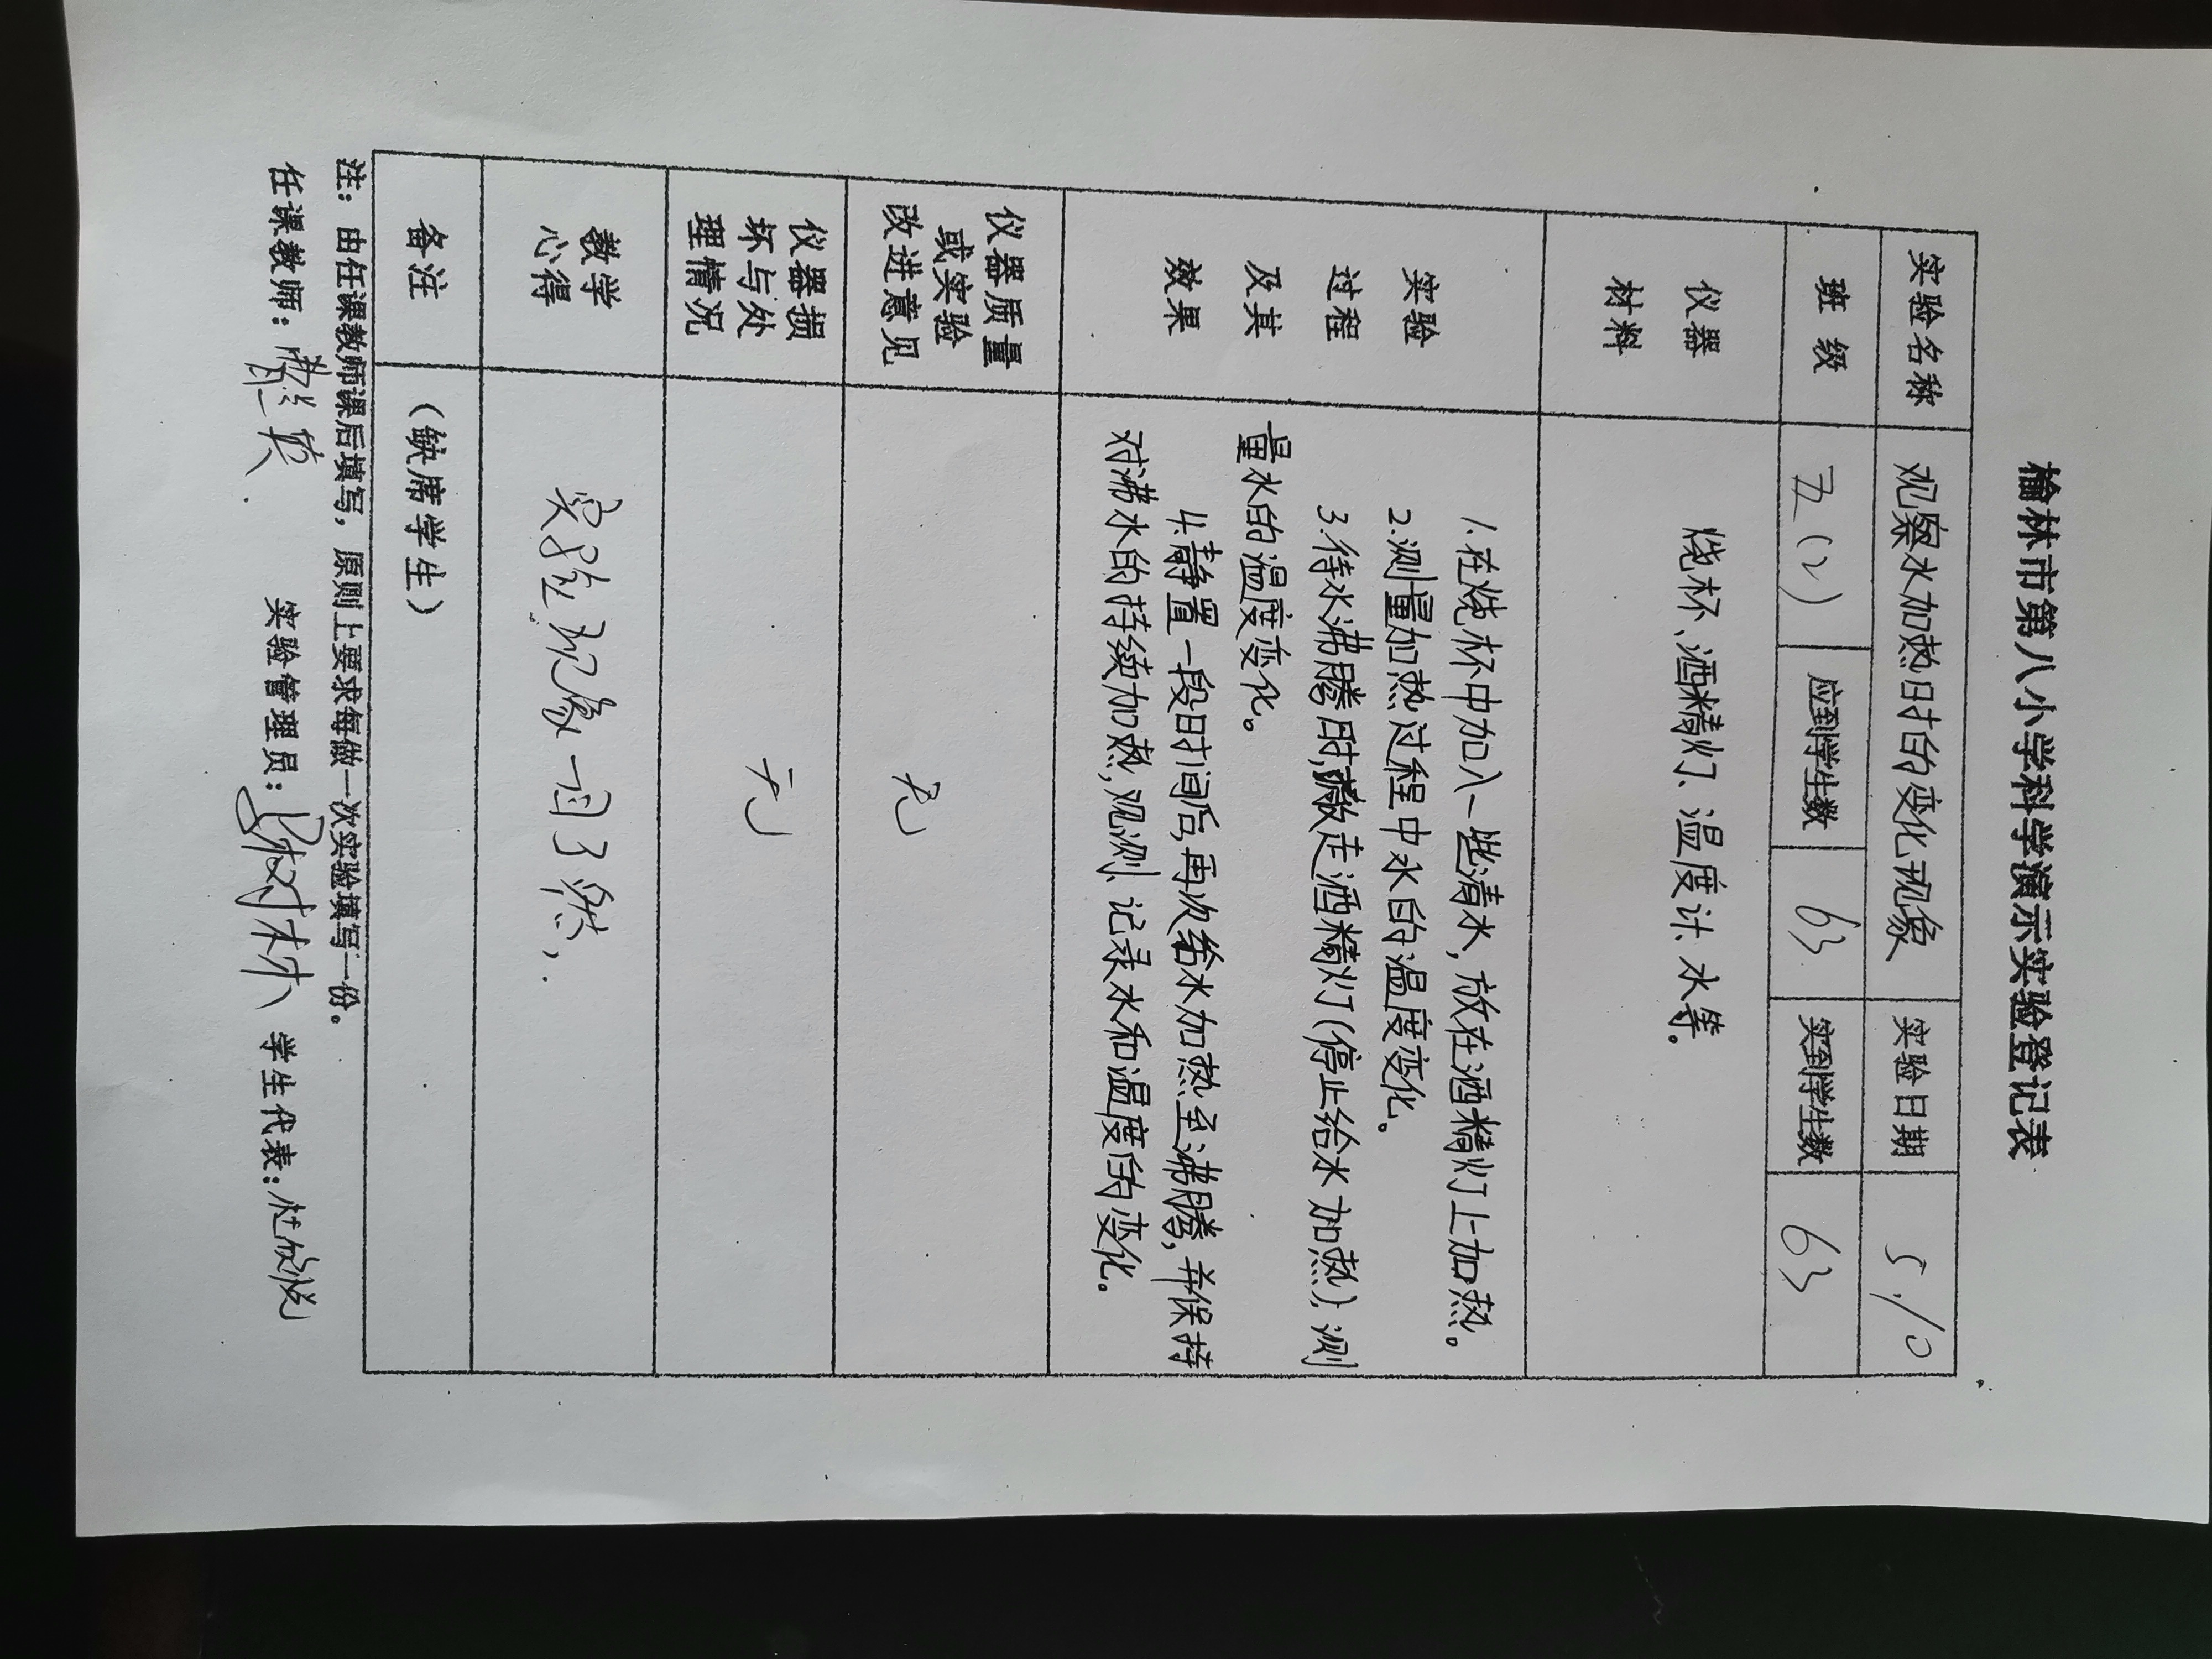 榆林市第八小学科学演示实验登记表
实验名称 观察水加热时的变化现象 实验日期 5.10
班 级 五(2) 应到学生数 63 实到学生数 63
仪器
材料
烧杯、酒精灯、温度计、水等。
实验
过程
及其
效果
1.在烧杯中加入一些清水，放在酒精灯上加热。
2.测量加热过程中水的温度变化。
3.待水沸腾时,撤走酒精灯(停止给水加热),测
量水的温度变化。
4.静置一段时间后,再次给水加热至沸腾,并保持
对沸水的持续加热,观测、记录水和温度的变化。
仪器质量
或实验
改进意见
无
仪器损
坏与处
理情况
无
教学
心得
实验现象一目了然,.
备注
（缺席学生）
注：由任课教师课后填写，原则上要求每做一次实验填写一份。
任课教师： 实验管理员： 学生代表：杜欣悦